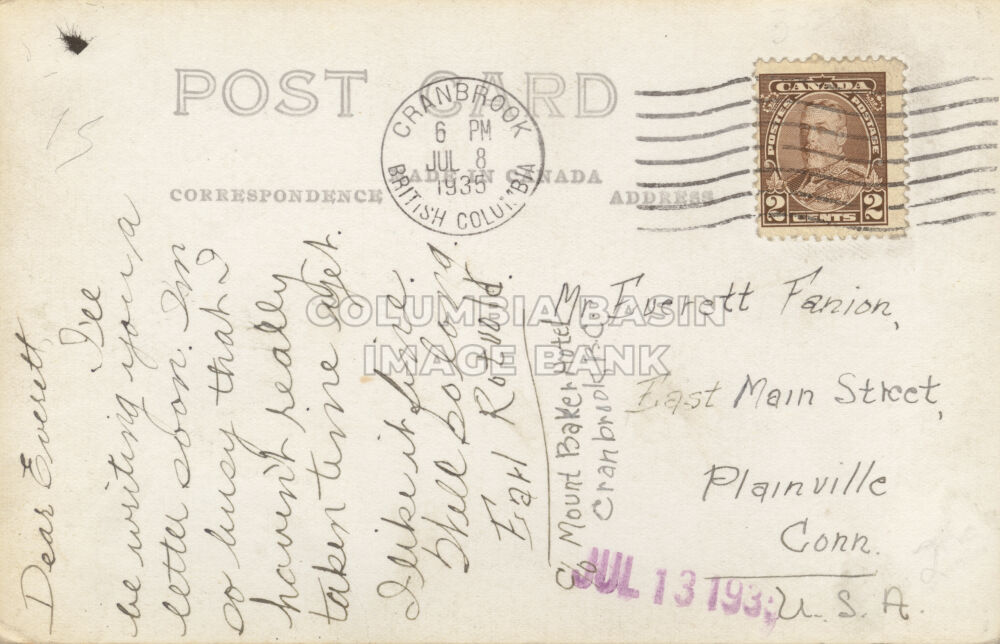 POST CARD
MADE IN CANADA
CORRESPONDENCE
ADDRESS
CRANBROOK
6 PM
JUL 8
1935
BRITISH COLUMBIA
CANADA
POSTES POSTAGE
2 CENTS 2
Dear Everett,
I'll
be writing you a
letter soon. I'm
so busy that I
haven't really
taken time yet.
I like it fine.
Still
Earl Rotvold.
c/o Mount Baker Hotel
Cranbrook, B.C.
Mr. Everett Fanion,
East Main Street,
Plainville
Conn.
U.S.A.
JUL 13 1935
COLUMBIA BASIN
IMAGE BANK